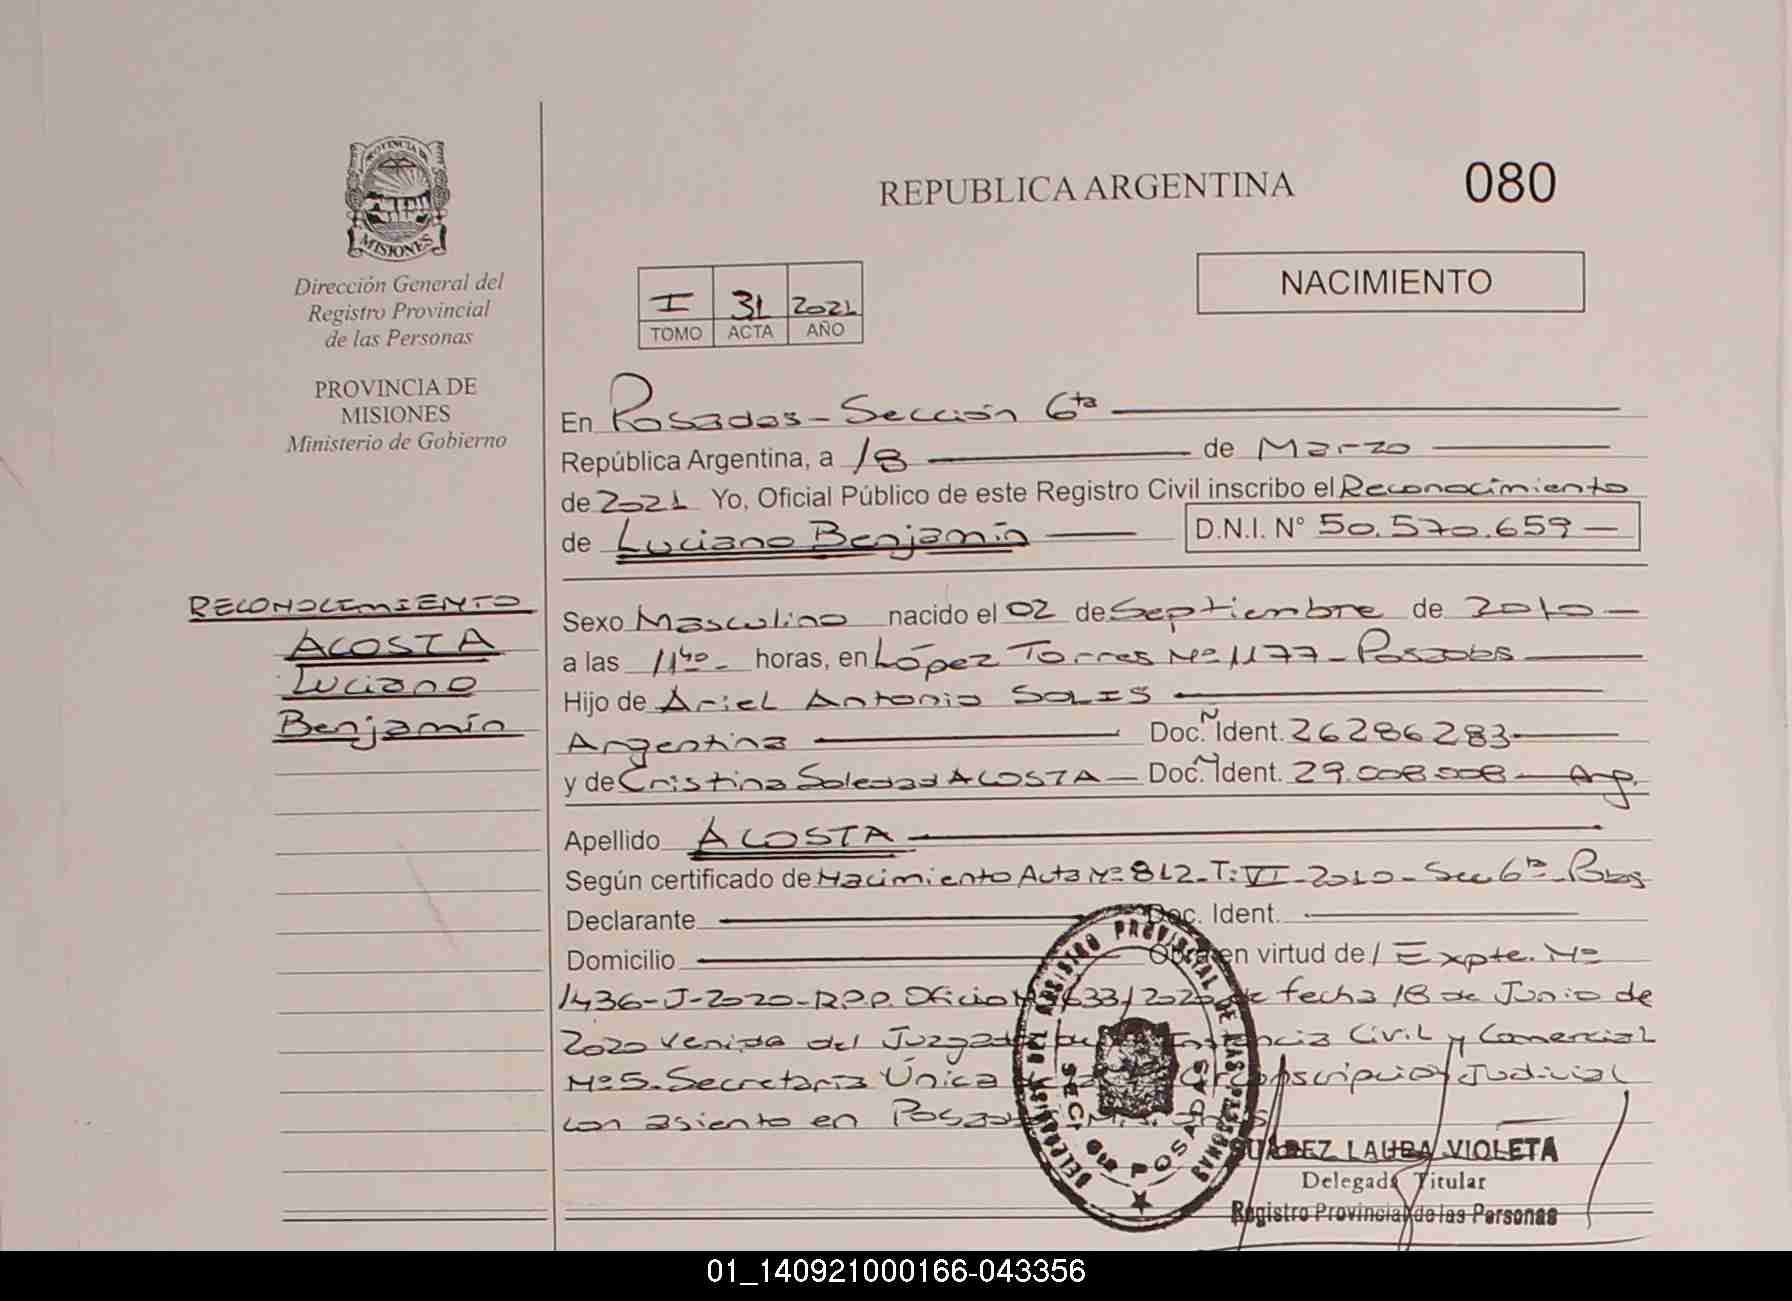 PROVINCIA DE
MISIONES
Dirección General del
Registro Provincial
de las Personas
PROVINCIA DE
MISIONES
Ministerio de Gobierno
RECONOCIMIENTO
ACOSTA
Luciano
Benjamín
REPUBLICA ARGENTINA
080
NACIMIENTO
I 31 2021
TOMO ACTA AÑO
En Posadas - Sección 6ta
República Argentina, a 18 de Marzo
de 2021 Yo, Oficial Público de este Registro Civil inscribo el Reconocimiento
de Luciano Benjamín D.N.I. N° 50.570.659 -
Sexo Masculino nacido el 02 de Septiembre de 2010 -
a las 11 40 - horas, en López Torres Nº 1177 - Posadas
Hijo de Ariel Antonio SOLIS
Argentina Doc. N Ident. 26286283
y de Cristina Soledad ACOSTA - Doc. N Ident. 29.008.008 - Arg.
Apellido ACOSTA
Según certificado de Nacimiento Acta Nº 812 - T: VI - 2010 - Sec 6ta - Pdas
Declarante Doc. Ident.
Domicilio Obra en virtud de / Expte. Nº
1436 - J - 2020 - R.P.P. Oficio 633/2020 de fecha 18 de Junio de
2020 venida del Juzgado Instancia Civil y Comercial
Nº 5 - Secretaría Única Circunscripción Judicial
con asiento en Posadas
DEL REGISTRO PROVINCIAL DE LAS PERSONAS
SECC. 6ta POSADAS
SUAREZ LAURA VIOLETA
Delegada Titular
Registro Provincial de las Personas
01_140921000166-043356